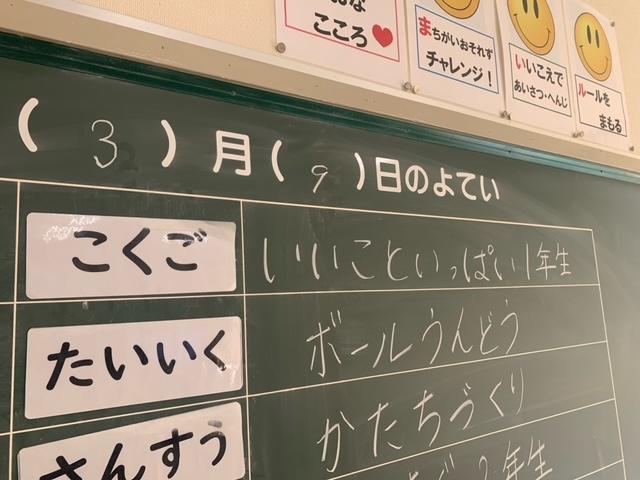 こころ
まちがいおそれず
チャレンジ！
いいこえで
あいさつ・へんじ
ルールを
まもる
( 3 ) 月 ( 9 ) 日のよてい
こくご いいこといっぱい1年生
たいいく ボールうんどう
さんすう かたちづくり
2年生